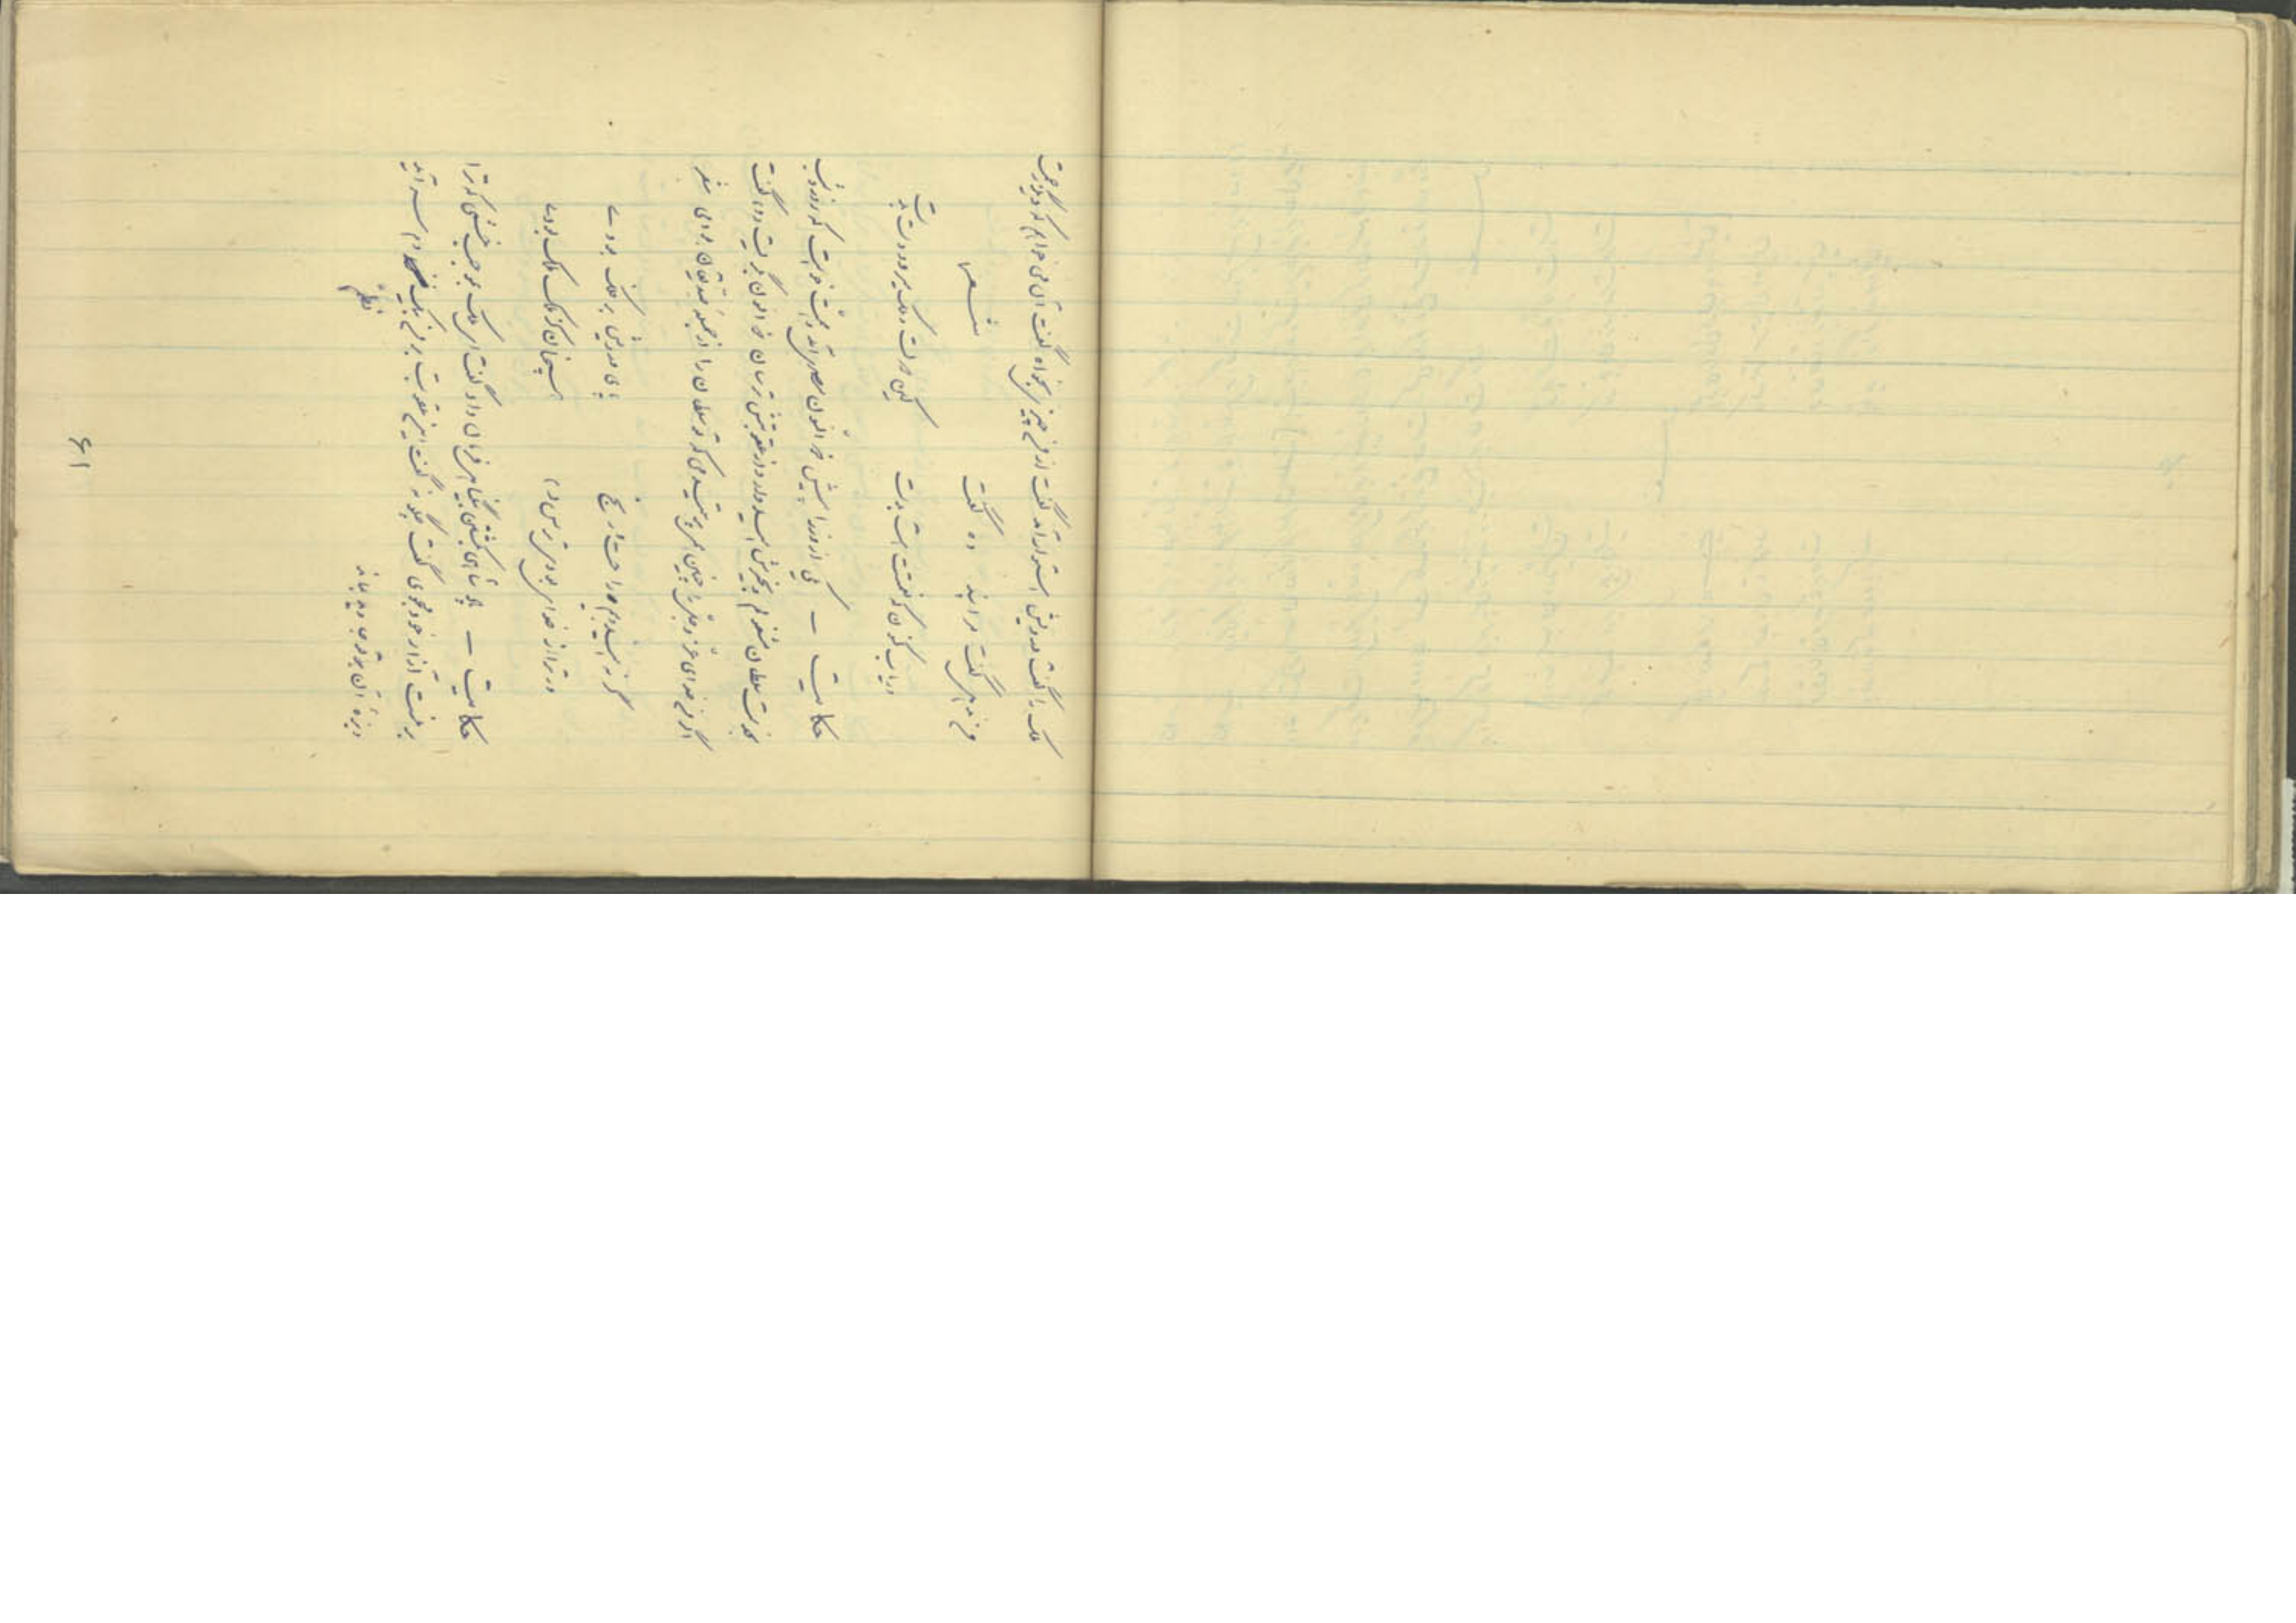 ملک را گفت درویش استوار آمد گفت از من چیزی بخواه گفت آن می خواهم که دیگر زحمت
من ندهی گفت مرا پند ده گفت شعر
دریاب کنون که نعمتت هست بدست کین دولت و ملک میرود دست بدست
حکایت – یکی از وزرا پیش ذوالنون مصری آمد و همت خواست که روز و شب
بخدمت سلطان مشغولم و بخیرش امیدوار و از عقوبتش ترسان ذوالنون بگریست و گفت
اگر من خدای عز و جل را چنین می پرستیدمی که تو سلطان را از جمله صدیقان بودمی شعر
گر نه امید و بیم راحت و رنج پای درویش بر فلک بودے
ور از خدا بترسیدی همچنان کز ملک ملک بودے
حکایت – پادشاهی بکشتن بیگناهی فرمان داد گفت ای ملک بموجب خشمی که ترا
بر منست آزار خود مجوی گفت چگونه گفت این عقوبت بر من بیک سر آید
و بزه آن بر تو جاوید بماند نظم
۶۱